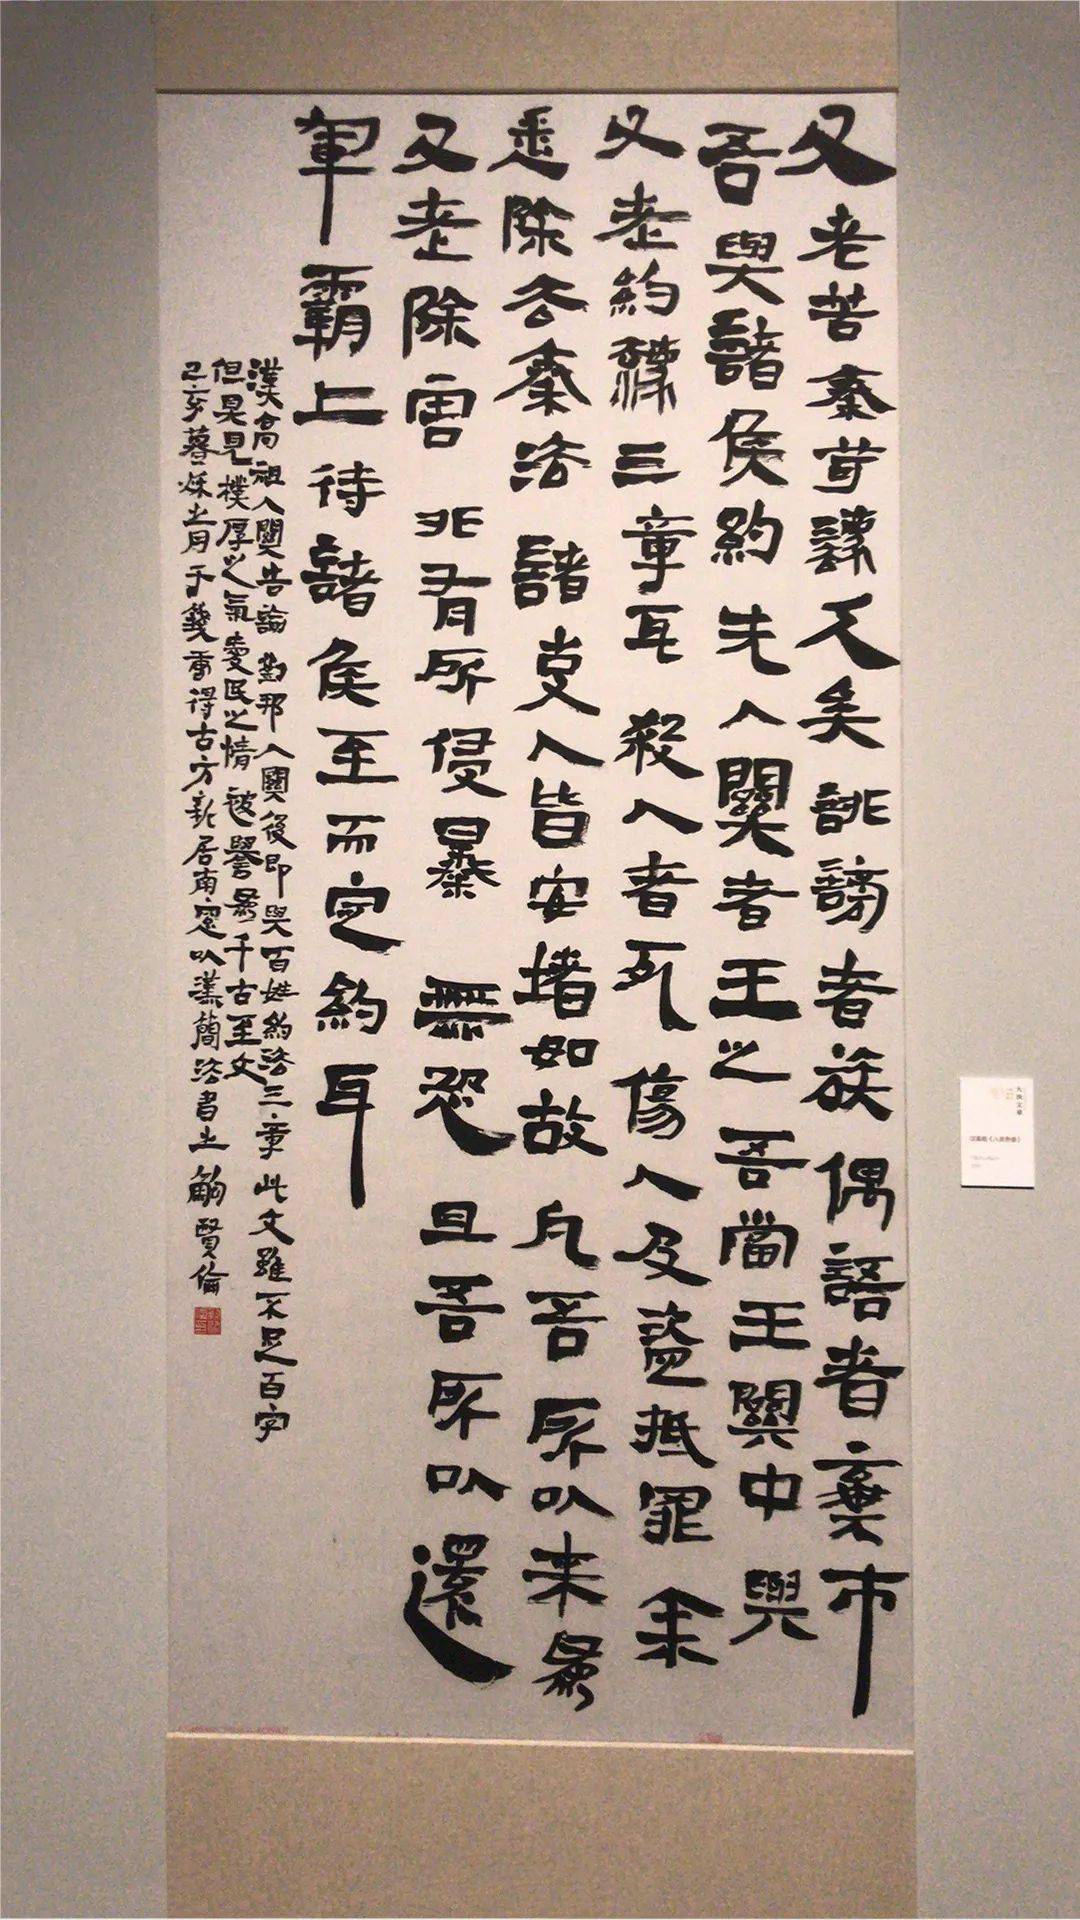 父老苦秦苛法久矣誹謗者族偶語者棄市
吾與諸侯約先入關者王之吾當王關中與
父老約法三章耳殺人者死傷人及盜抵罪余
悉除去秦法諸吏人皆安堵如故凡吾所以來為
父老除害非有所侵暴無恐且吾所以還
軍霸上待諸侯至而定約耳
漢高祖入關告諭 劉邦入關後即與百姓約法三章此文雖不足百字
但具見樸厚之氣愛民之情被譽為千古至文
己亥暮秋十月于錢唐得古方新居南窗以漢簡法書之 鮑賢倫